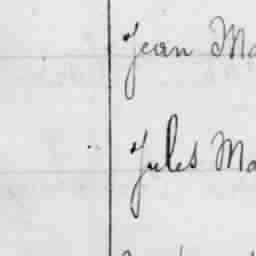 Jean Ma
Jules Ma